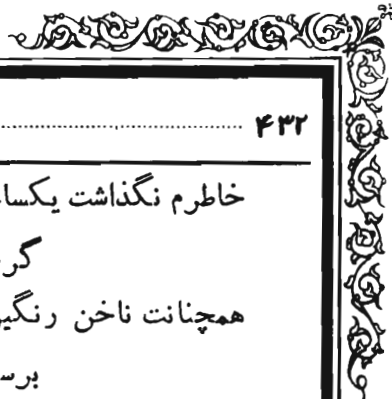 ۴۳۲
خاطرم نگذاشت یکسا
گر
همچنانت ناخن رنگیر
برس